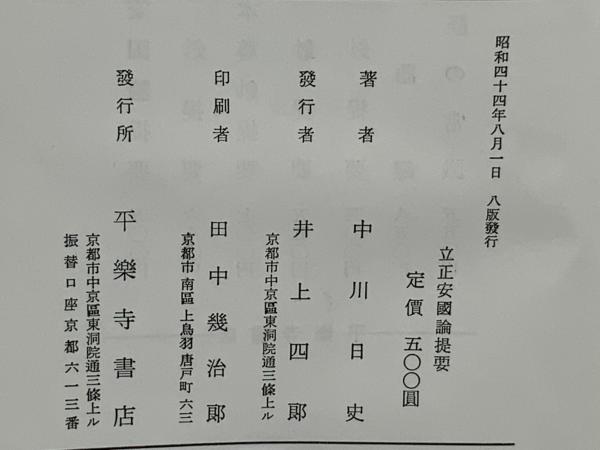 昭和四十四年八月一日 八版發行
立正安國論提要
定價 五〇〇圓
著者 中川日史
發行者 井上四郎
京都市中京區東洞院通三條上ル
印刷者 田中幾治郎
京都市南區上鳥羽唐戸町六三
發行所 平樂寺書店
京都市中京區東洞院通三條上ル
振替口座京都六一三番